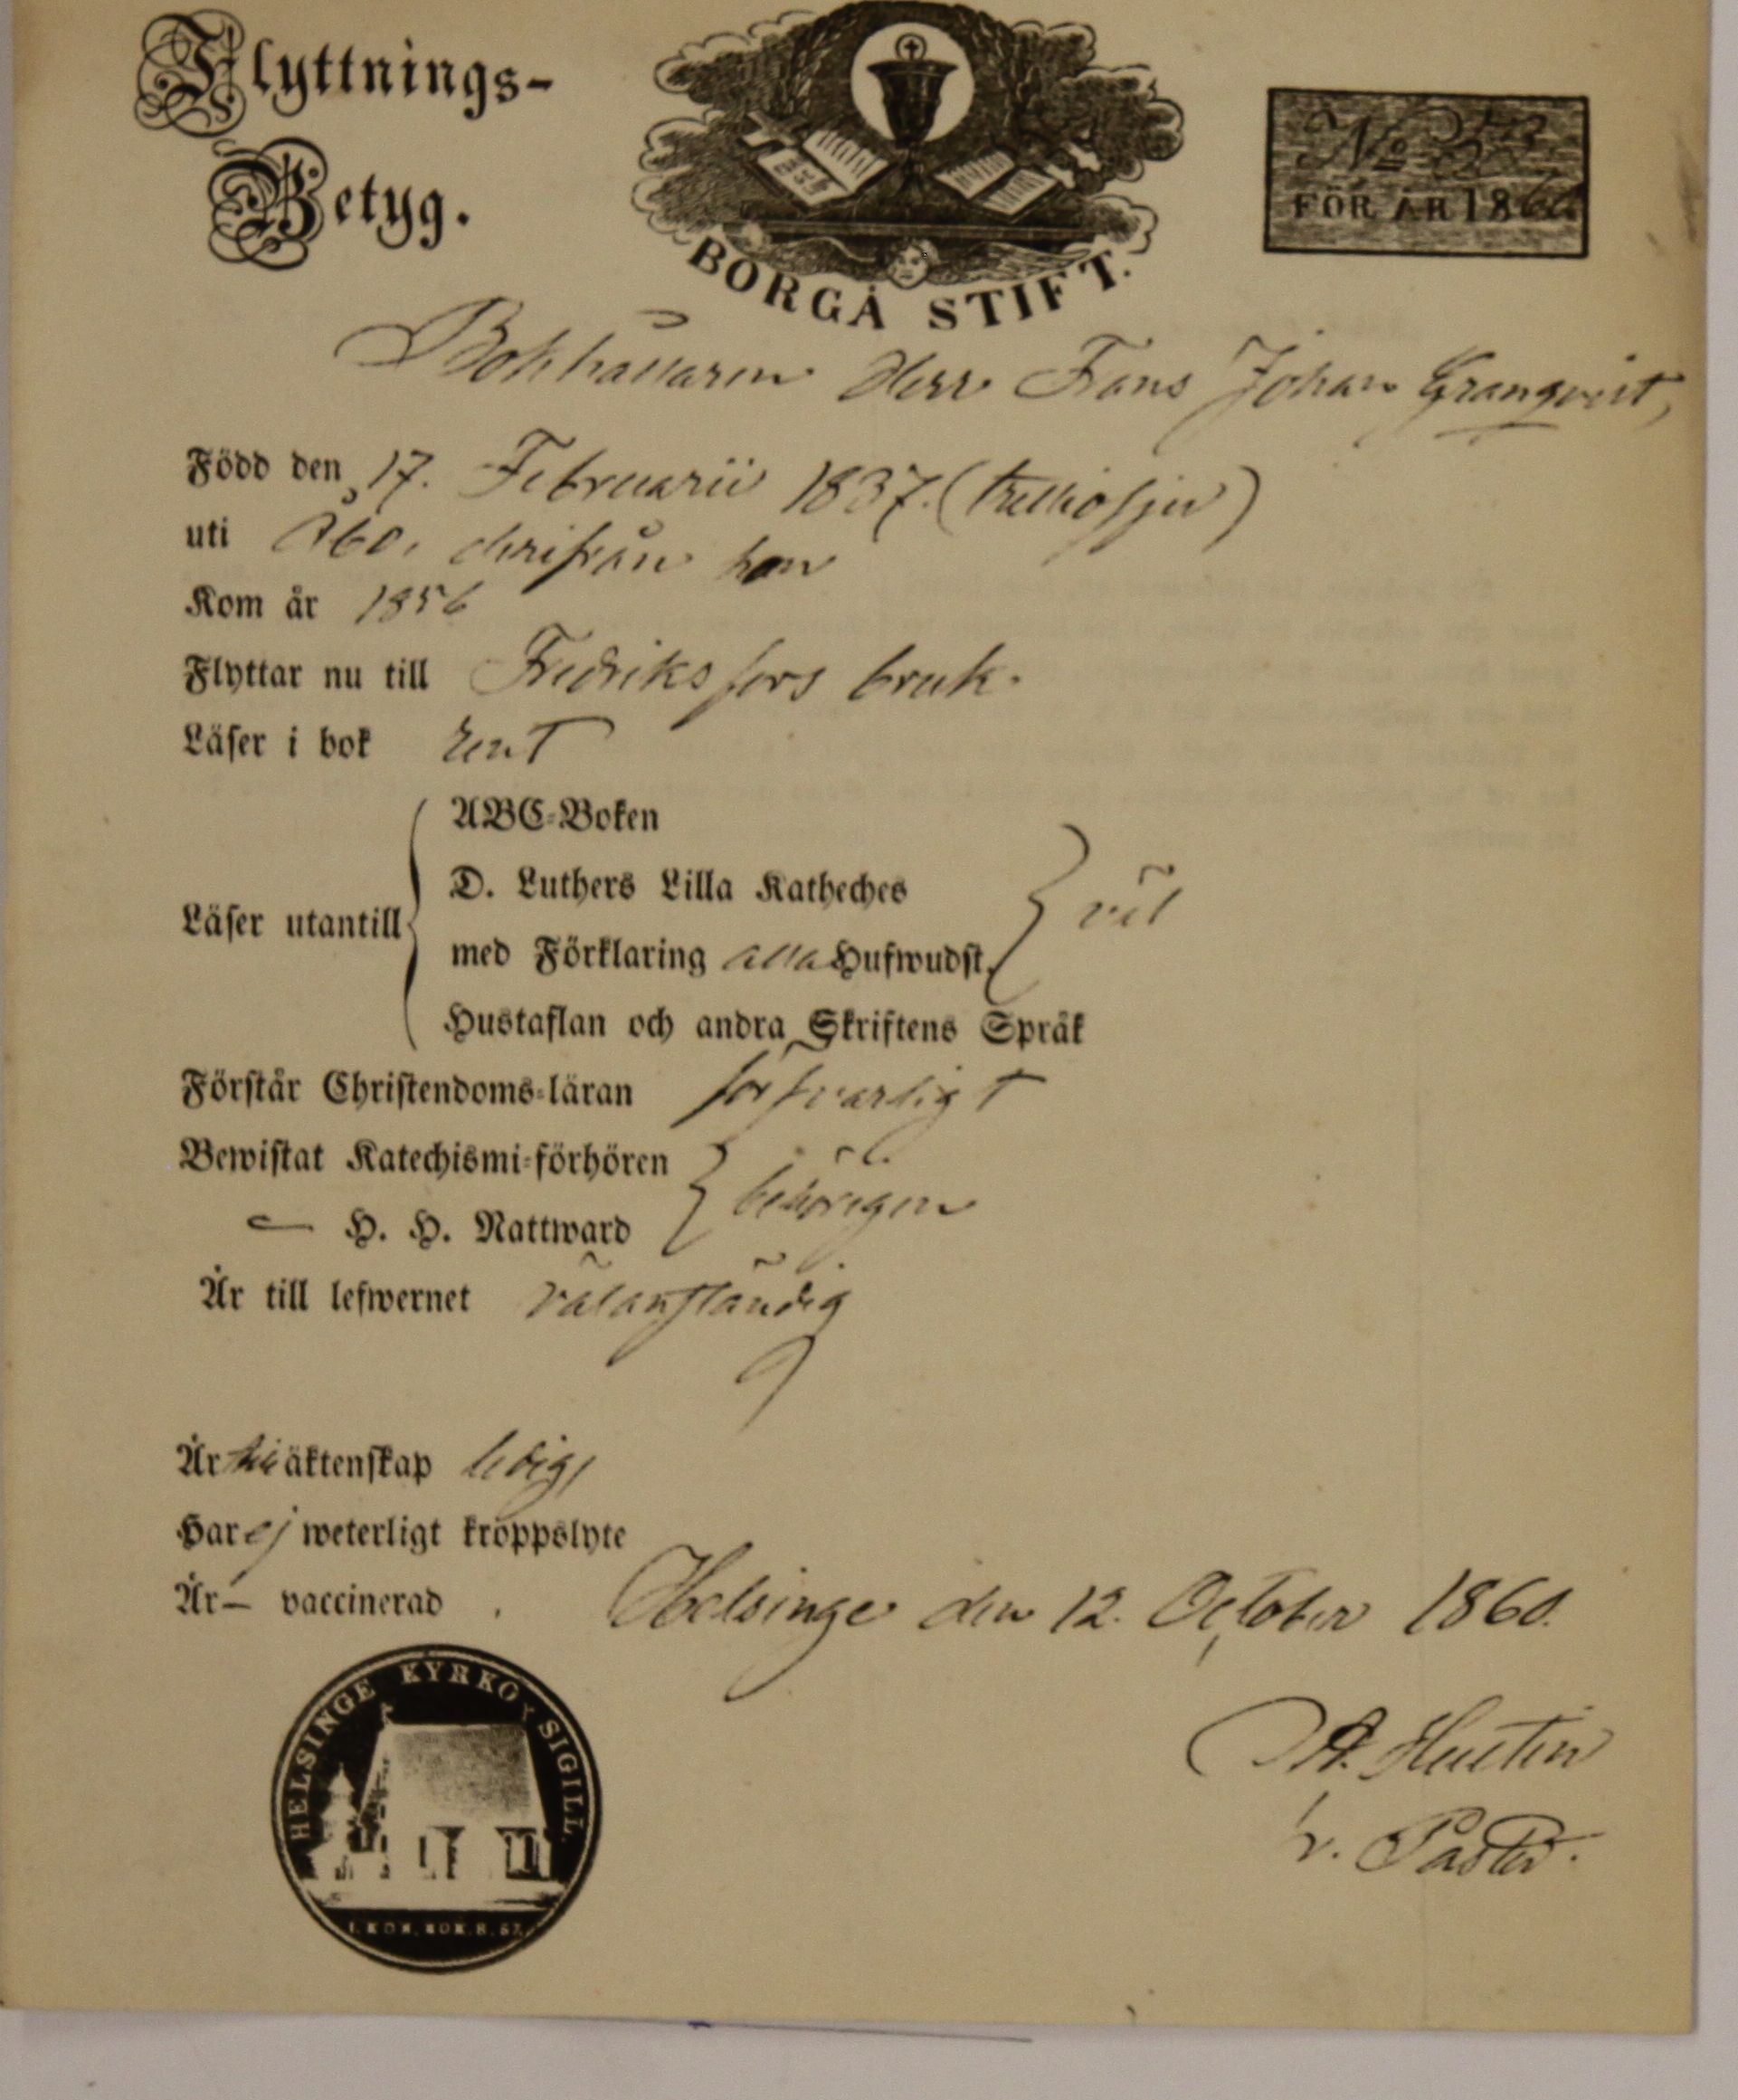 Flyttnings-
Betyg.
BORGÅ STIFT.
No
FÖR ÅR 1860
Bokhållaren Herr Frans Johan Granqvist,
Född den 17. Februarii 1837. (trettiosju)
uti Åbo, derifrån han
Kom år 1856
Flyttar nu till Fredriksfors bruk.
Läser i bok rent
ABC-Boken
D. Luthers Lilla Katheches
Läser utantill
med Förklaring alla Hufwudst. väl
Hustaflan och andra Skriftens Språk
Förstår Christendoms-läran försvarligt
Bewistat Katechismi-förhören
— H. H. Nattward behörigen
Är till lefwernet välanständig
Är till äktenskap ledig,
Har ej weterligt kroppslyte
Är — vaccinerad
Helsinge den 12. October 1860.
HELSINGE KYRKO SIGILL
A. Hustin
v. Pastor.